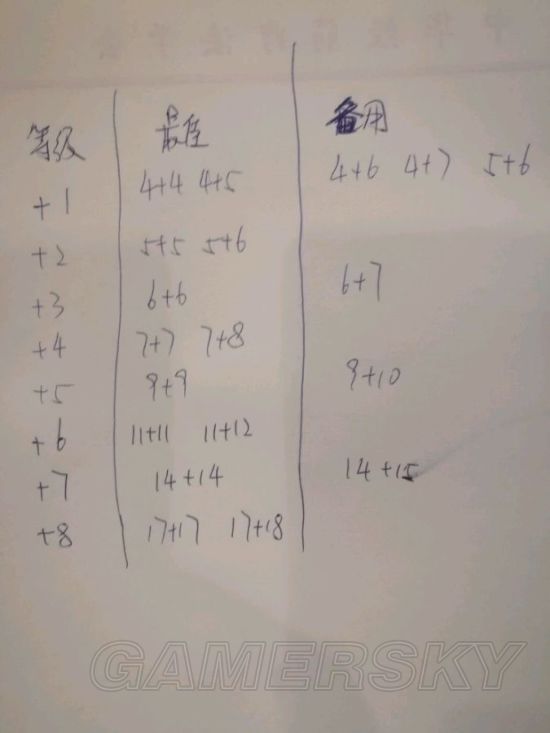 等级 最佳 备用
+1 4+4 4+5 4+6 4+7 5+6
+2 5+5 5+6
+3 6+6 6+7
+4 7+7 7+8
+5 9+9 9+10
+6 11+11 11+12
+7 14+14 14+15
+8 17+17 17+18
GAMERSKY